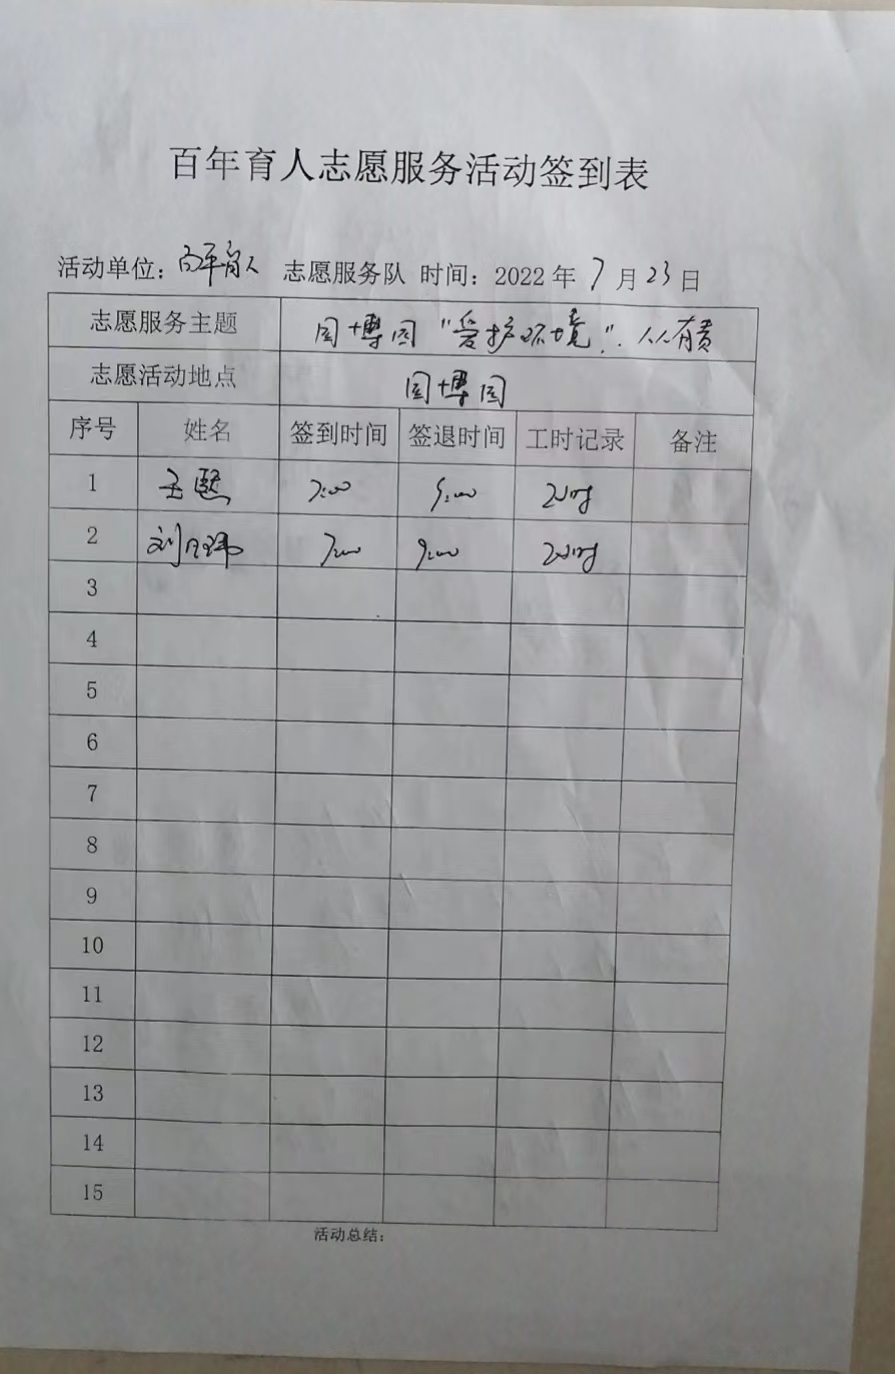 百年育人志愿服务活动签到表
活动单位：百年育人 志愿服务队 时间：2022年7月23日
志愿服务主题 园博园“爱护环境”．人人有责
志愿活动地点 园博园
序号 姓名 签到时间 签退时间 工时记录 备注
1 王 7:00 9:00 2小时
2 刘 7:00 9:00 2小时
3
4
5
6
7
8
9
10
11
12
13
14
15
活动总结：